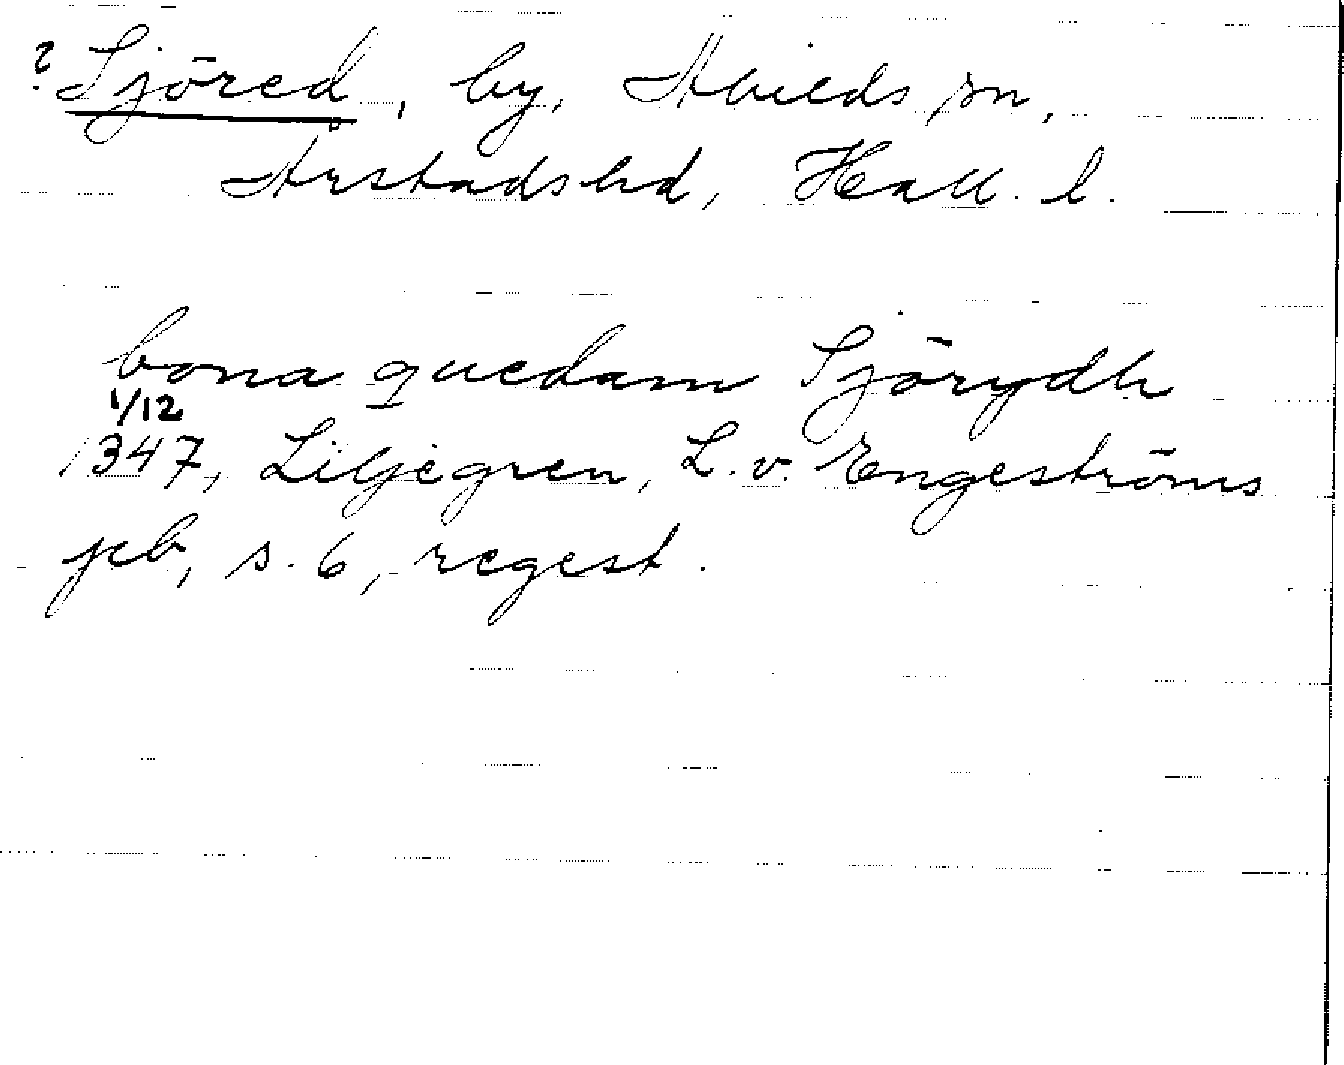 ? Sjöred, by, Abilds sn,
Årstads hd, Hall. l.
bona quedam Sjörydh
1/12
1347, Liljegren, L. v. Engeströms
jeb, s. 6, regest.